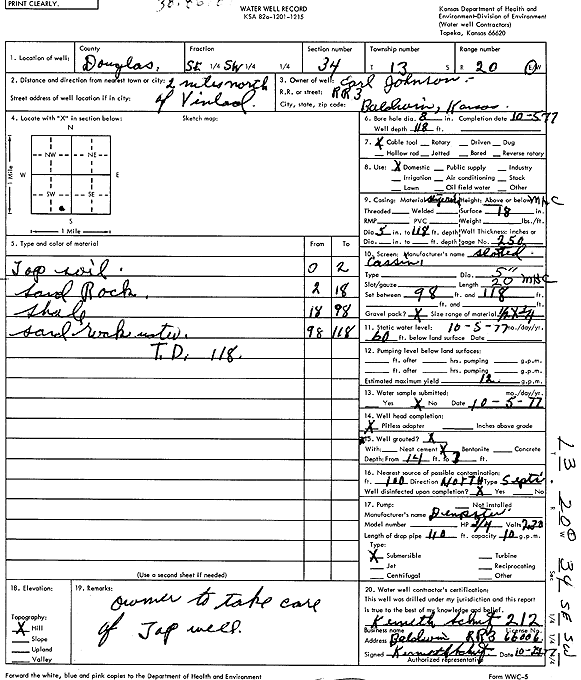 PRINT CLEARLY.
WATER WELL RECORD
KSA 82a-1201-1215
Kansas Department of Health and
Environment-Division of Environment
(Water well Contractors)
Topeka, Kansas 66620
1. Location of well: County Douglas, Fraction SE 1/4 SW 1/4 1/4 Section number 34 Township number T 13 S Range number R 20 E/W
2. Distance and direction from nearest town or city: 2 miles north
of Vinland.
Street address of well location if in city:
3. Owner of well: Earl Johnson
R.R. or street: RR3
City, state, zip code: Baldwin, Kansas.
4. Locate with "X" in section below:
Sketch map:
N
NW NE
W E
SW SE
S
1 Mile
1 Mile
6. Bore hole dia. 8 in. Completion date 10-5-77
Well depth 118 ft.
7. X Cable tool Rotary Driven Dug
Hollow rod Jetted Bored Reverse rotary
8. Use: X Domestic Public supply Industry
Irrigation Air conditioning Stock
Lawn Oil field water Other
9. Casing: Material Height: Above or below
Threaded Welded Surface 18 in.
RMP PVC Weight lbs./ft.
Dia. 5 in. to 118 ft. depth Wall Thickness: inches or
Dia. in. to ft. depth gage No. .250
5. Type and color of material From To
Top soil. 0 2
sand Rock. 2 18
shale 18 98
sand rock water. 98 118
T.D. 118.
10. Screen: Manufacturer's name slotted
Type Dia. 5"
Slot/gauze Length 20
Set between 98 ft. and 118 ft.
ft. and ft.
Gravel pack? X Size range of material
11. Static water level: 10-5-77 mo./day/yr.
60 ft. below land surface Date
12. Pumping level below land surfaces:
ft. after hrs. pumping g.p.m.
ft. after hrs. pumping g.p.m.
Estimated maximum yield 12 g.p.m.
13. Water sample submitted: mo./day/yr.
Yes X No Date 10-5-77
14. Well head completion:
X Pitless adapter Inches above grade
15. Well grouted? X
With: Neat cement X Bentonite Concrete
Depth: From 14 ft. to 3 ft.
16. Nearest source of possible contamination:
ft. 100 Direction NORTH Type Septi
Well disinfected upon completion? X Yes No
17. Pump: Not installed
Manufacturer's name Dempster
Model number HP 3/4 Volts 220
Length of drop pipe 110 ft. capacity 10 g.p.m.
Type:
X Submersible Turbine
Jet Reciprocating
Centrifugal Other
(Use a second sheet if needed)
18. Elevation:
Topography:
X Hill
Slope
Upland
Valley
19. Remarks:
owner to take care
of Top well.
20. Water well contractor's certification:
This well was drilled under my jurisdiction and this report
is true to the best of my knowledge and belief.
Kenneth 212
Business name License No.
Address Baldwin RR3 66006
Signed Kenneth Date
Authorized representative
13 20E 34 SE SW
Forward the white, blue and pink copies to the Department of Health and Environment
Form WWC-5